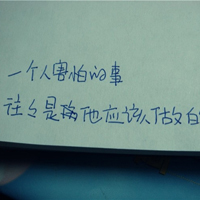 一个人害怕的事
往々是他应该做的